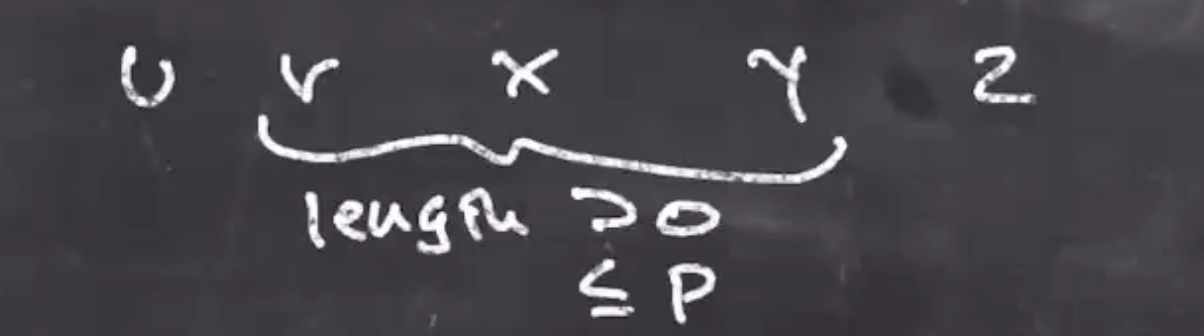 U V X Y Z
length >0
≤ P